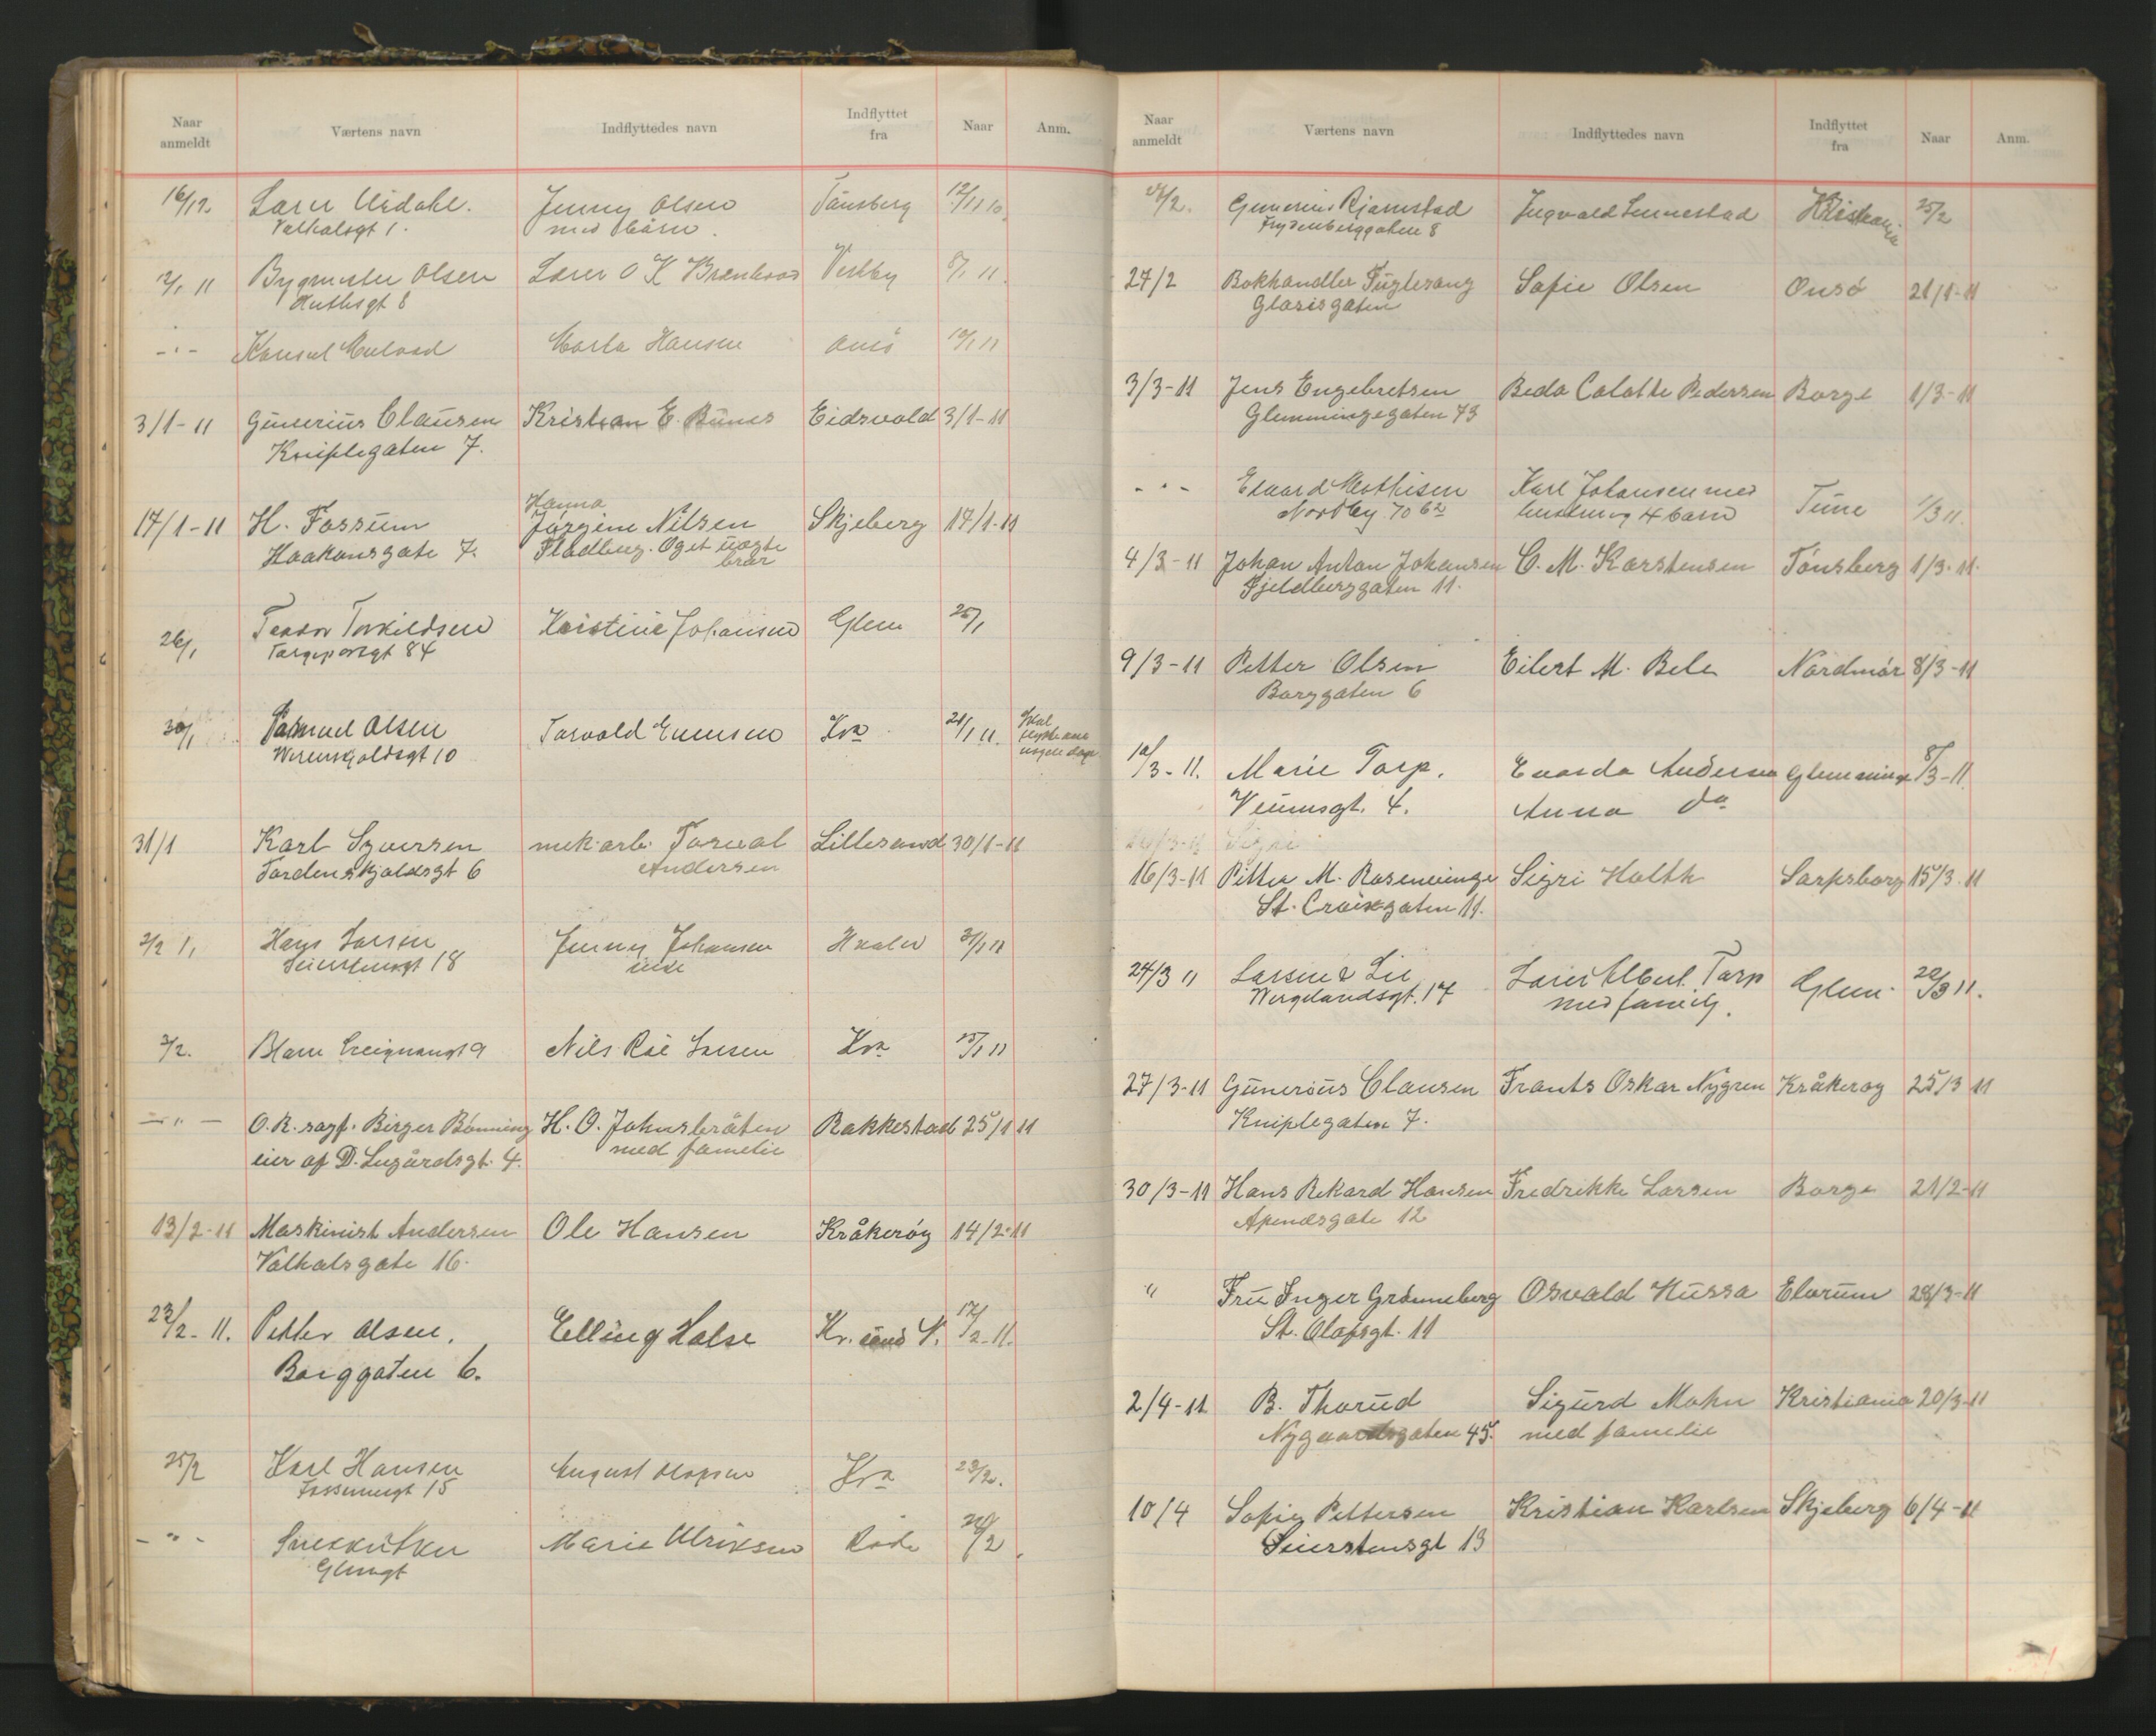 Naar anmeldt Værtens navn Indflyttedes navn Indflyttet fra Naar Anm.
16/12 Larer Jenny Olsen Tønsberg 12/11 10
Valhalsgt 1. med barn.
12/1 11 Bygmester Olsen Lærer O K Vestby 8/1 11
8
- " - Konsul Marta Hansen Onsø 10/1 11
3/1-11 Gunerius Clausen Kristian E. Bunes Eidsvold 3/1-11
Kniplegaten 7.
Hanna
17/1-11 H. Fossum Jørgine Nilsen Skjeberg 17/1-11
Haakonsgate 7. Fladberg. Og et uægte
brar
26/1 Teodor Torkildsen Kristine Johansen Glem 25/1
Torgeportgt 84
30/1 Samuel Olsen Torvald Kra 21/1 11. Skal
Werenskjoldsgt 10 nogen dage
31/1 Karl Syversen mek.arb. Torval Lillesand 30/1-11
Tordenskjoldsgt 6 Andersen
2/2 11 Hans Larsen Jenny Johansen Hvaler 31/1 11
18
2/2. 9 Nils Roe Larsen Kra 15/1 11
- " - O.R. sagf. Birger Bønning H. O. Johnsbråten Rakkestad 25/1 11
eier af D. Lugårdsgt. 4. med familie
13/2-11 Maskinist Andersen Ole Hansen Kråkerøy 14/2-11
Valhalsgate 16.
23/2-11. Petter Olsen. Elling Halse Kr. sund N. 17/2-11.
Borggaten 6.
25/2 Karl Hansen August Olafsen Kra 23/2.
15
- " - Marie Ulriksen Råde 24/2
Glemgt
Naar anmeldt Værtens navn Indflyttedes navn Indflyttet fra Naar Anm.
Gunerius Ingvald Kristiania 25/2
Frydenberggaten 8
27/2 Bokhandler Fuglesang Sofie Olsen Onsø 21/1-11
Glasisgaten
3/3-11 Jens Engebretsen Beda Calotte Pedersen Borge 1/3-11
Glemmingegaten 73
- " - Edvard Mathisen Karl Johansen med Tune 1/3 11.
Nordby 70 b2 hustru og 4 barn
4/3-11 Johan Anton Johansen C. M. Karstensen Tønsberg 1/3-11.
Fjeldberggaten 11.
9/3-11 Petter Olsen Eilert M. Bele Nordmør 8/3-11
Borggaten 6
10/3-11. Marie Torp. Evarda Andersen Glemminge 8/3-11.
Veumsgt. 4. Anna do
Sigri
16/3-11 Pitter M. Rosenvinge Sigri Holth Sarpsborg 15/3-11
St. Croixgaten 11.
24/3 11 Larsen & Lie Lærer Albert Torp Glem. 20/3 11.
Wergelandsgt. 17 med famili.
27/3-11 Gunerius Clausen Frants Oskar Nygren Kråkerøy 25/3 11
Kniplegaten 7.
30/3-11 Hans Rikard Hansen Fredrikke Larsen Borge 21/2-11
Apenesgate 12
" Fru Inger Grønneberg Osvald Hussa Elverum 28/3-11
St. Olafsgt. 11
2/4-11 B. Thorud Sigurd Mohn Kristiania 20/3-11
Nygaardsgaten 45. med familie
10/4 Sofie Pettersen Kristian Karlsen Skjeberg 6/4-11
Seierstensgt 13